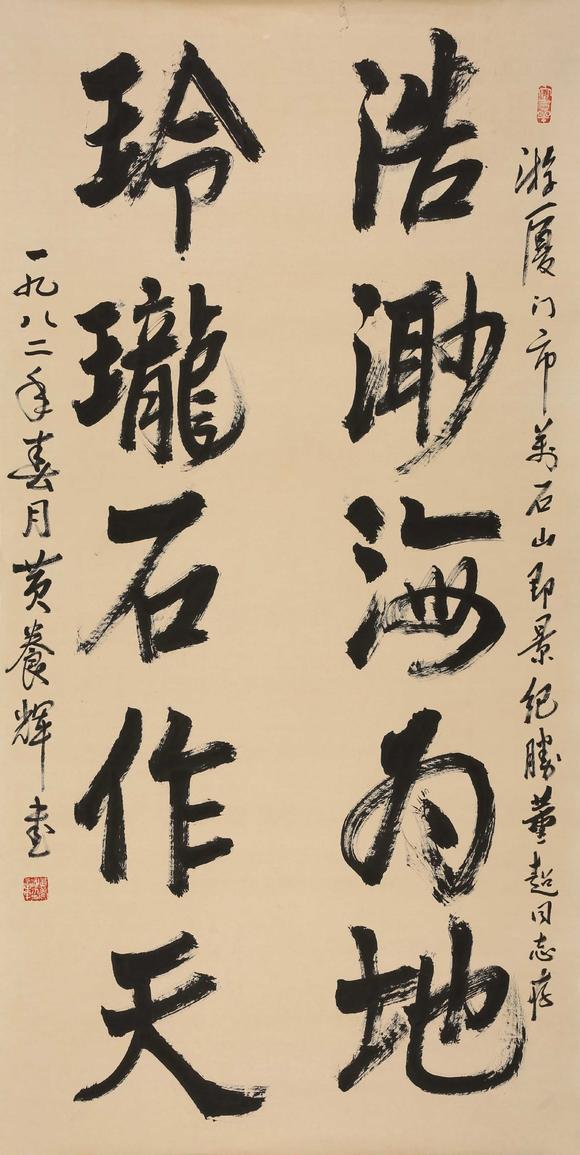 游厦门市萬石山即景纪勝董超同志存
浩渺海为地
玲瓏石作天
一九八二年春月黄養辉书